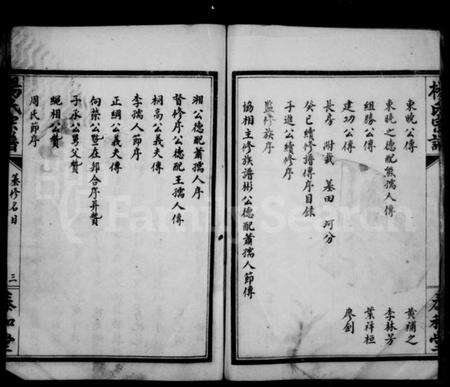 東晚公傳
東曉之德配熊孺人傳 黃補之
組勝公傳 李林芳
建功公傳 葉祥桓
長房 附載 墓田 河分 廖劍
癸巳續修譜傳序目錄
子進公續修序
監修族序
協相主修族譜彬公德配蕭孺人節傳
湘公德配蕭孺人序
督修序公德配王孺人傳
桐高公義傳
李孺人節序
正綱公義夫傳
向榮公暨在邦合序并贊
子承公男父贊
繩相公贊
周氏節序
楊氏宗譜
墓修名目
三
泰和堂
FamilySearch